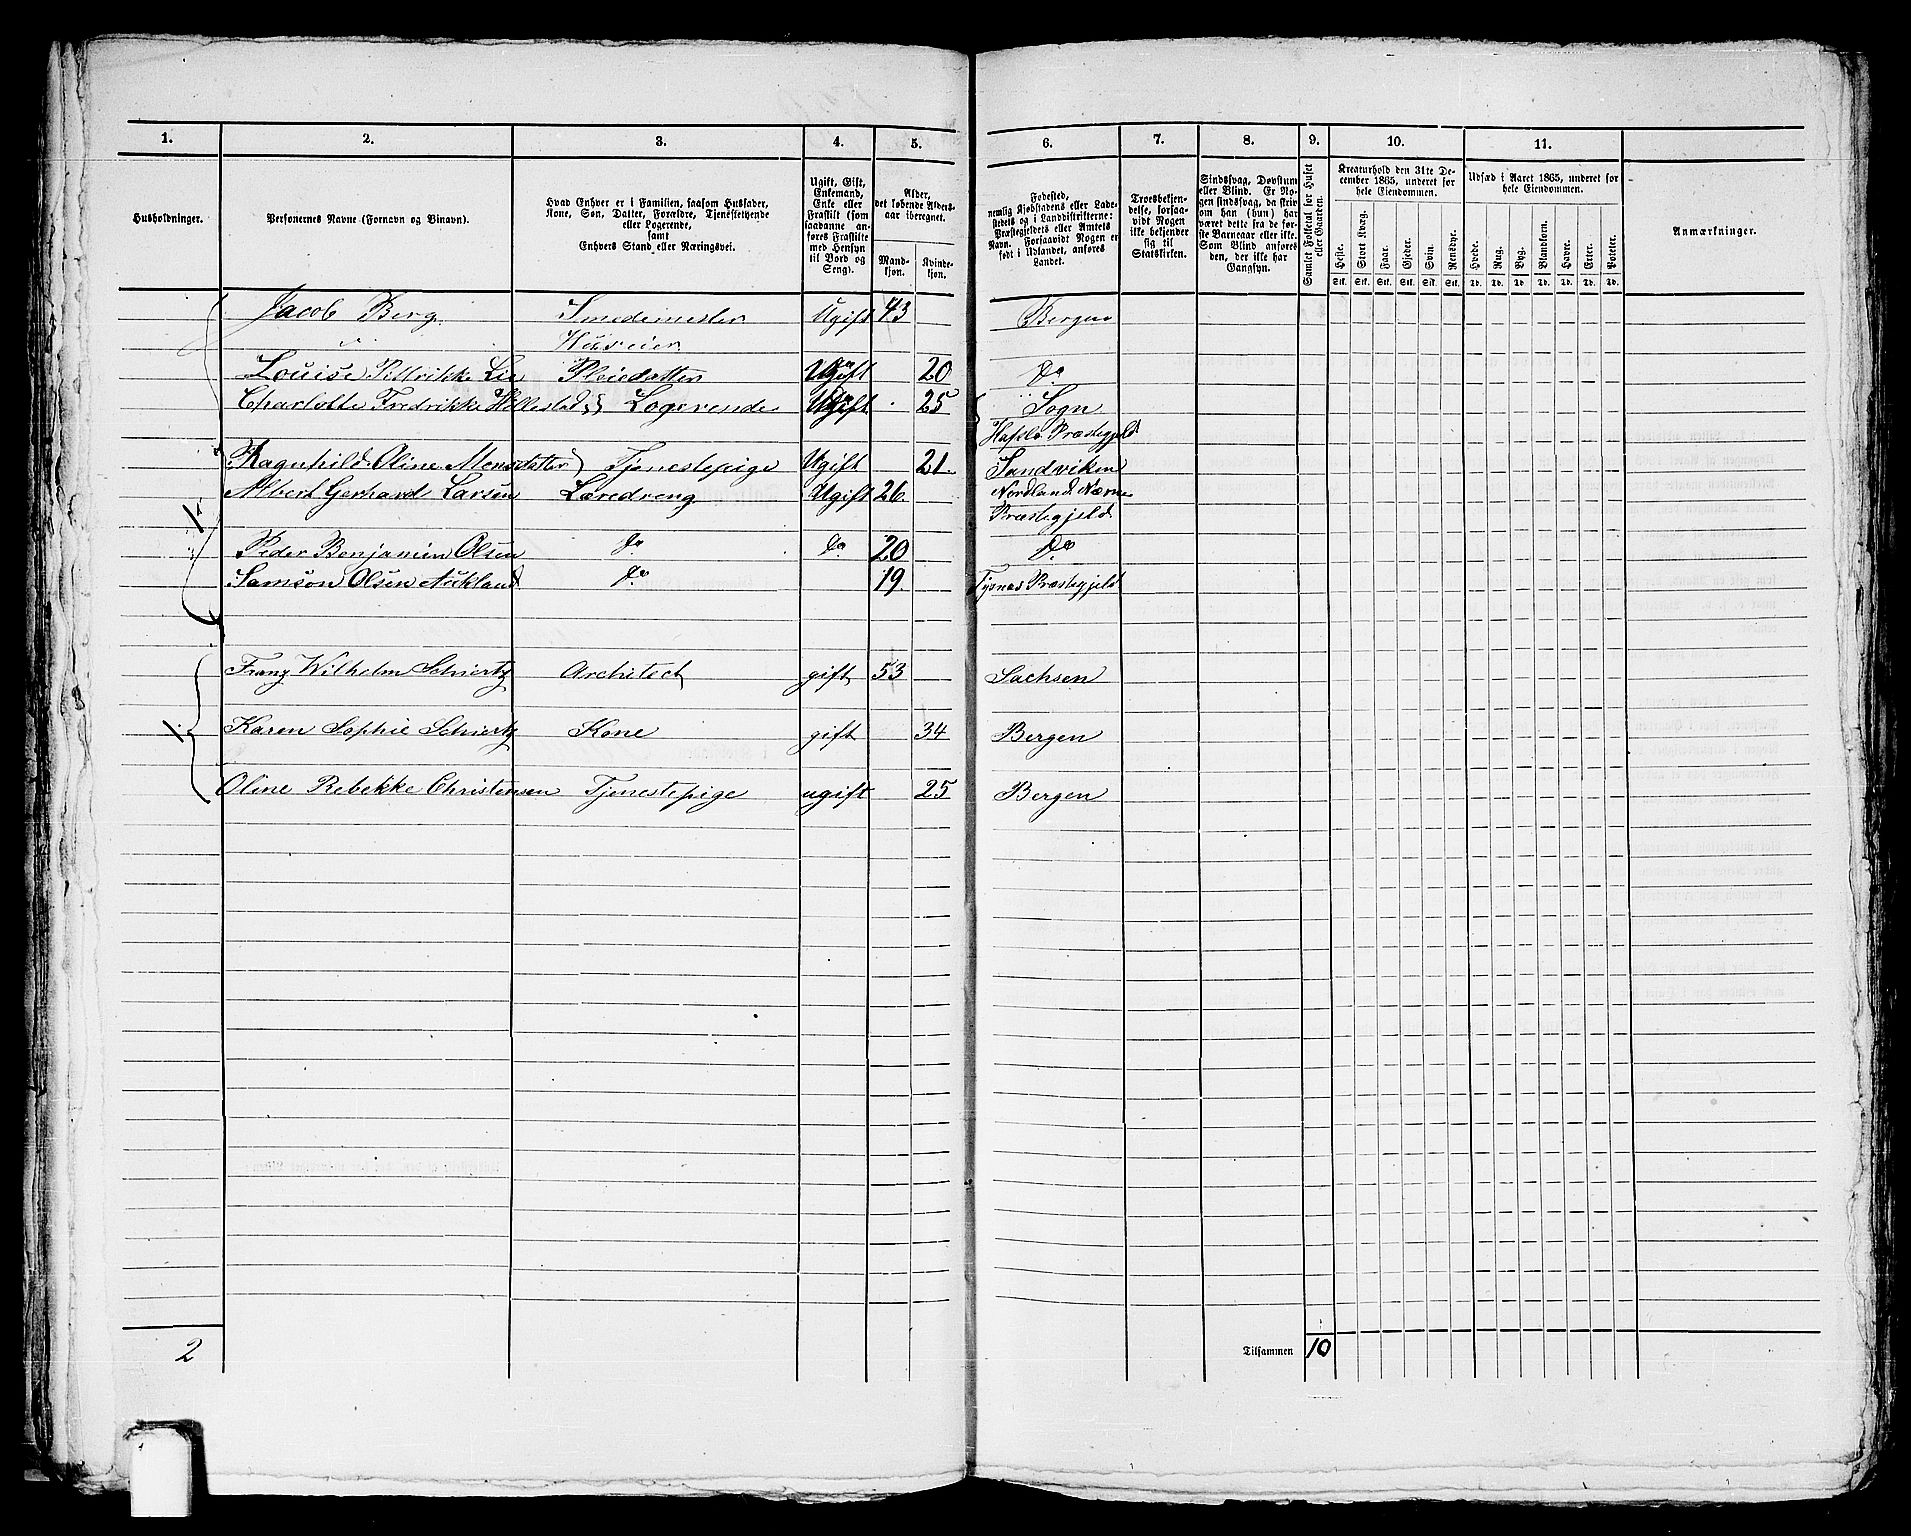 1. 2. 3. 4. 5. 6. 7. 8. 9. 10. 11.
Husholdninger.
Personernes Navne (Fornavn og Binavn).
Hvad Enhver er i Familien, saasom Husfader,
Kone, Søn, Datter, Forældre, Tjenestetyende
eller Logerende,
samt
Enhvers Stand eller Næringsvei.
Ugift, Gift,
Enkemand,
Enke eller
Fraskilt (som
saadanne an-
føres Fraskilte
med Hensyn
til Bord og
Seng).
Alder,
det løbende Alders-
aar iberegnet.
Mand-
kjøn.
Kvinde-
kjøn.
Fødested,
nemlig Kjøbstadens eller Lade-
stedets og i Landdistrikterne:
Præstegjeldets eller Amtets
Navn. Forsaavidt Nogen er
født i Udlandet, anføres
Landet.
Troesbekjen-
delse, forsaa-
vidt Nogen
ikke bekjender
sig til
Statskirken.
Sindssvag, Døvstum
eller Blind. Er No-
gen sindssvag, da skriv
om han (hun) har
været dette fra de før-
ste Barneaar eller ikke.
Som Blind anføres
den, der ikke har
Gangsyn.
Samlet Folketal for Huset
eller Gaarden.
Kreaturhold den 31te De-
cember 1865, underet for
hele Eiendommen.
Heste. Stort Kvæg. Faar. Gjeder. Svin. Rensdyr.
Stk. Stk. Stk. Stk. Stk. Stk.
Udsæd i Aaret 1865, underet for
hele Eiendommen.
Hvede. Rug. Byg. Blandkorn. Havre. Erter. Poteter.
Td. Td. Td. Td. Td. Td. Td.
Anmærkninger.
Jacob Berg Smedemester Ugift 43 Bergen
Huseier
Louise Lie Pleiedatter Ugift 20 Do
Charlotte Fredrikke Logerende Ugift 25 Sogn
Hafslo Præstegjeld
Ragnhild Oline Monsdatter Tjenestepige Ugift 21. Sandviken
1 Albert Gerhard Larsen Læredreng Ugift 26 Nordland
Præstegjeld
Peder Benjamin Olsen do do 20 Do
Samson Olsen Do 19. Tysnæs Præstegjeld
Franz Wilhelm Schiertz Architect gift 53 Sachsen
1. Karen Sophie Schiertz Kone gift 34 Bergen
Oline Rebekke Christensen Tjenestepige ugift 25 Bergen
2 Tilsammen 10